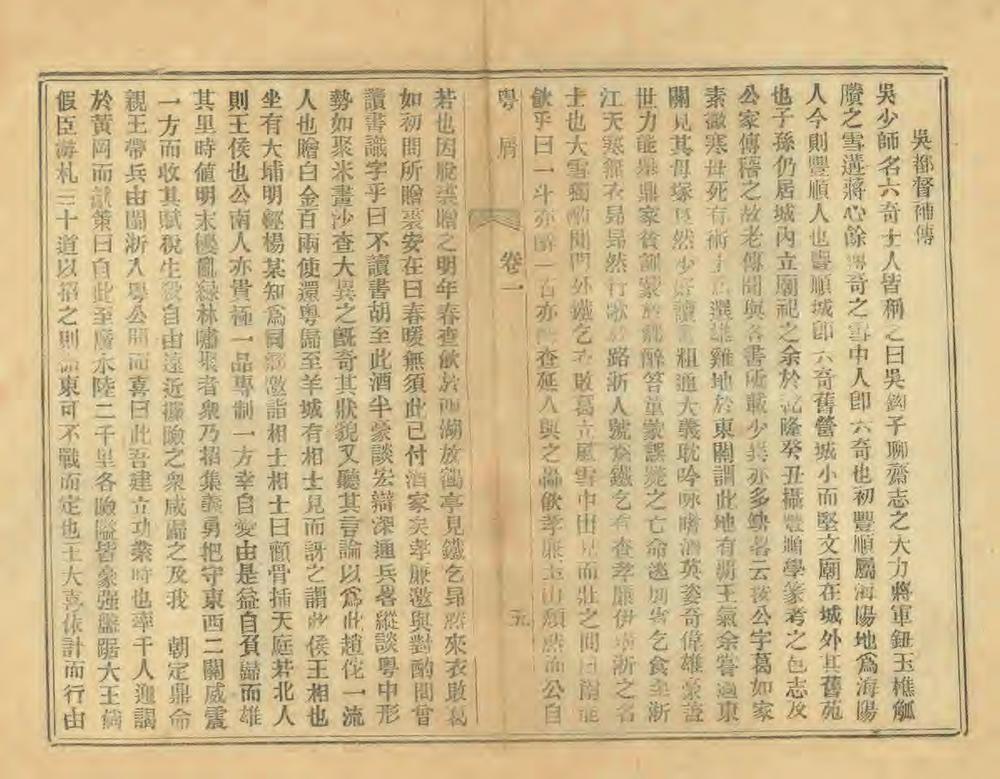 吳都督補傳
吳少師名六奇士人皆稱之曰吳鉤子聊齋志之大力將軍鈕玉樵觚
賸之雪遘蔣心餘傳奇之雪中人卽六奇也初豐順屬海陽地爲海陽
人今則豐順人也豐順城卽六奇舊營城小而堅文廟在城外其舊苑
也子孫仍居城內立廟祀之余於乾隆癸丑攝豐順學篆考之邑志及
公家傳稽之故老傳聞與各書所載少異亦多缺畧云按公字葛如家
素微寒母死有術士爲選雄雞地於東關謂此地有霸王氣余嘗過東
關見其母塚頁然少好讀書粗通大義耽吟咏嗜酒英姿奇偉雄豪蓋
世力能舉鼎家貧訓蒙於鄉醉笞童蒙誤斃之亡命逃別省乞食至浙
江天寒無衣昂昂然行歌於路浙人號爲鐵乞有查孝廉伊璜浙之名
士也大雪獨酌聞門外鐵乞衣敗葛立風雪中出見而壯之問曰南能
飲乎曰一斗亦醉一石亦醉查延入與之轟飲孝廉玉山頹然而公自
粵屑
卷一
元
若也因脫裘贈之明年春查飲於西湖放鶴亭見鐵乞昂然來衣敗葛
如初問所贈裘安在曰春暖無須此已付酒家矣孝廉邀與對酌問曾
讀書識字乎曰不讀書胡至此酒半豪談宏辯深通兵畧縱談粵中形
勢如聚米畫沙查大異之旣奇其狀貌又聽其言論以爲此趙佗一流
人也贈白金百兩使還粵歸至羊城有相士見而訝之謂此侯王相也
坐有大埔明經楊某知爲同鄉邀詣相士相士曰顴骨插天庭若北人
則王侯也公南人亦貴極一品專制一方幸自愛由是益自負歸而雄
其里時値明末擾亂綠林嘯聚者衆乃招集義勇把守東西二關威震
一方而收其賦稅生殺自由遠近據險之衆咸歸之及我　朝定鼎命
親王帶兵由閩浙入粵公聞而喜曰此吾建立功業時也率千人迎謁
於黃岡而獻策曰自此至廣水陸二千里各險隘皆豪强盤踞大王倘
假臣游札三十道以招之則廣東可不戰而定也王大喜依計而行由